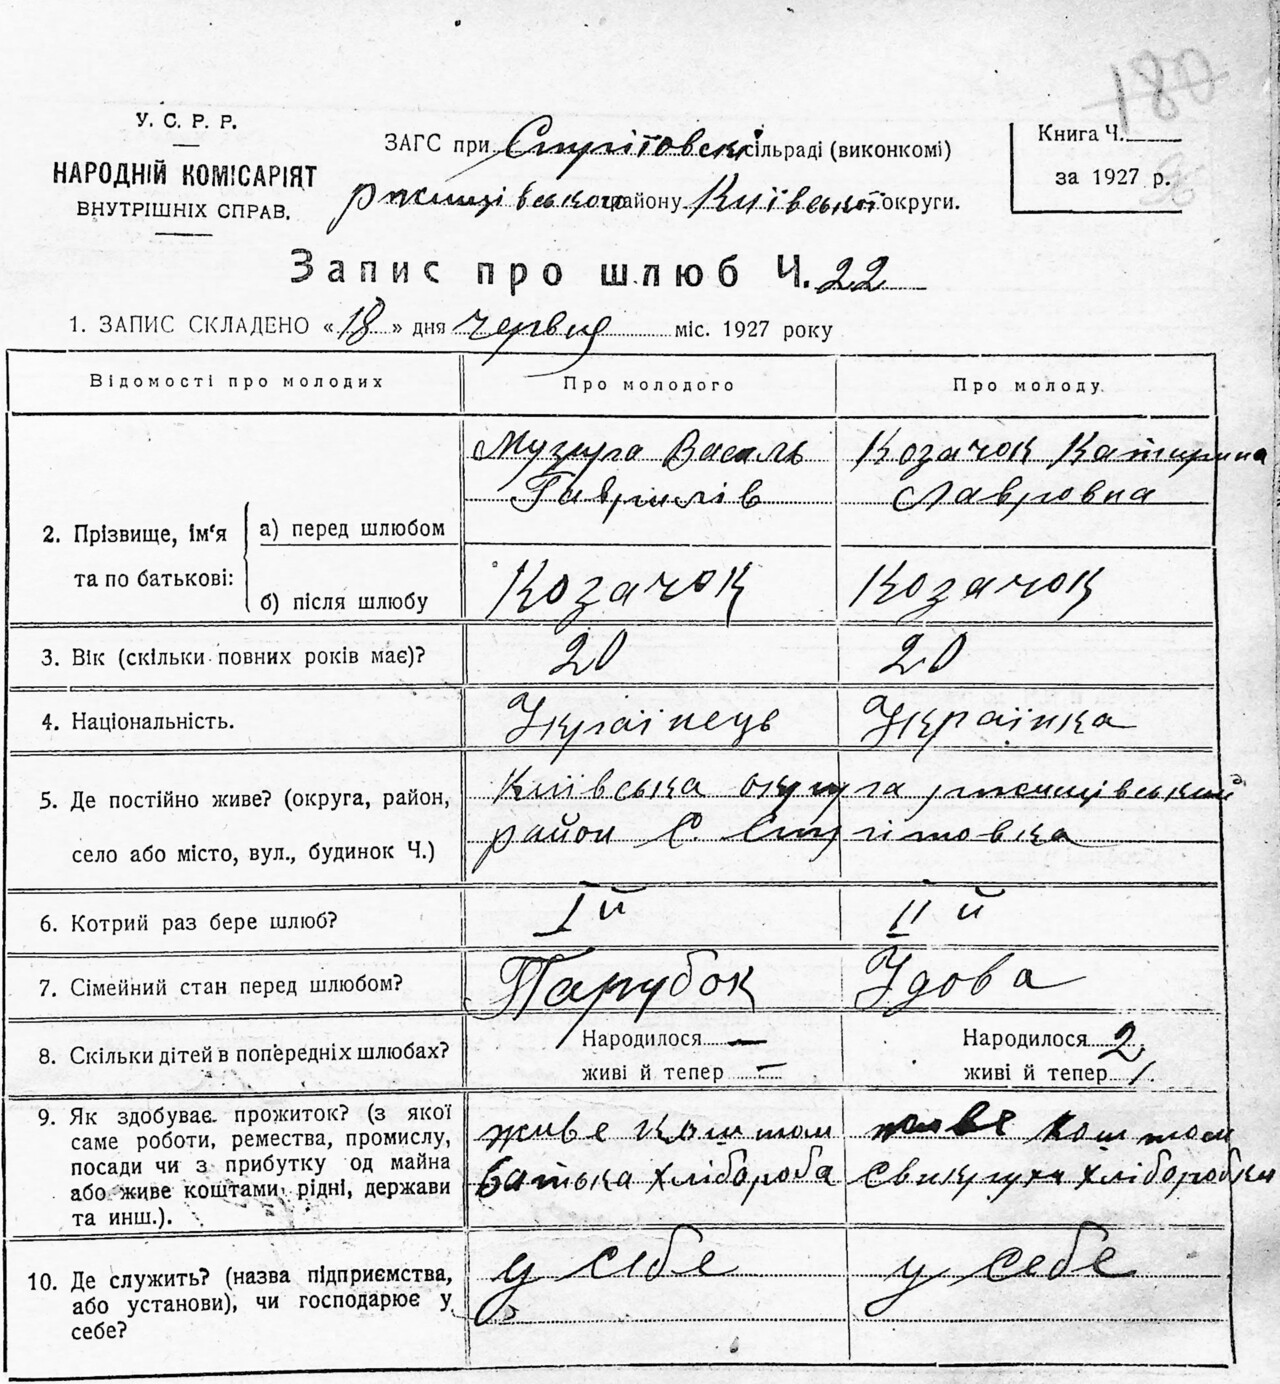 180
У. С. Р. Р.
НАРОДНІЙ КОМІСАРІЯТ
ВНУТРІШНІХ СПРАВ.
ЗАГС при Стрітовскі сільраді (виконкомі)
ржищівського району Київської округи.
Книга Ч.
за 1927 р.
Запис про шлюб Ч. 22
1. ЗАПИС СКЛАДЕНО «18» дня червня міс. 1927 року
Відомості про молодих Про молодого Про молоду
2. Прізвище, ім'я та по батькові:
а) перед шлюбом
Музира Василь Гаврилів
Козачок Катирина Лавровна
б) після шлюбу Козачок Козачок
3. Вік (скільки повних років має)? 20 20
4. Національність. Українець Українка
5. Де постійно живе? (округа, район, Київська округа ржищівський
село або місто, вул., будинок Ч.) район С. Стрітовка
6. Котрий раз бере шлюб? I й II й
7. Сімейний стан перед шлюбом? Парубок Удова
8. Скільки дітей в попередніх шлюбах?
Народилося — Народилося 2
живі й тепер — живі й тепер 1
9. Як здобуває прожиток? (з якої
саме роботи, ремества, промислу,
посади чи з прибутку од майна
або живе коштами рідні, держави
та инш.).
живе коштом
батька хлібороба
живе коштом
свикрухи хліборобки
10. Де служить? (назва підприємства,
або установи), чи господарює у
себе?
у себе у себе